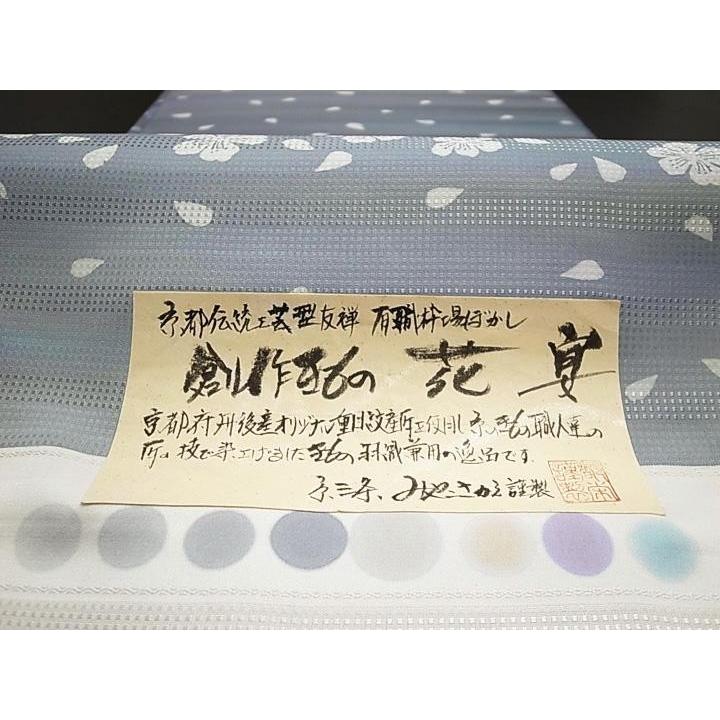 京都伝統工芸型友禅 有職枠場ぼかし
創作きもの 花宴
京都府丹後産オリジナル重目紋意匠を使用し京のきもの職人達の
技で染上げました きもの羽織兼用の逸品です。
京三条、みやこさかえ謹製